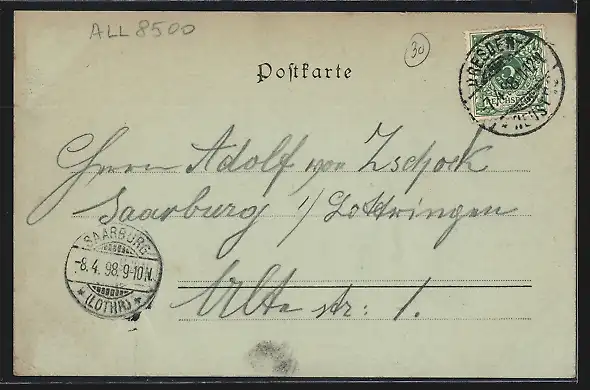 ALL 8500
30
Postkarte
DRESDEN
NEUST.
Herrn Adolf von Zschock
Saarburg i/ Lothringen
SAARBURG
-8.4.98.9-10N.
* (LOTHR) *
Alte str: 1.